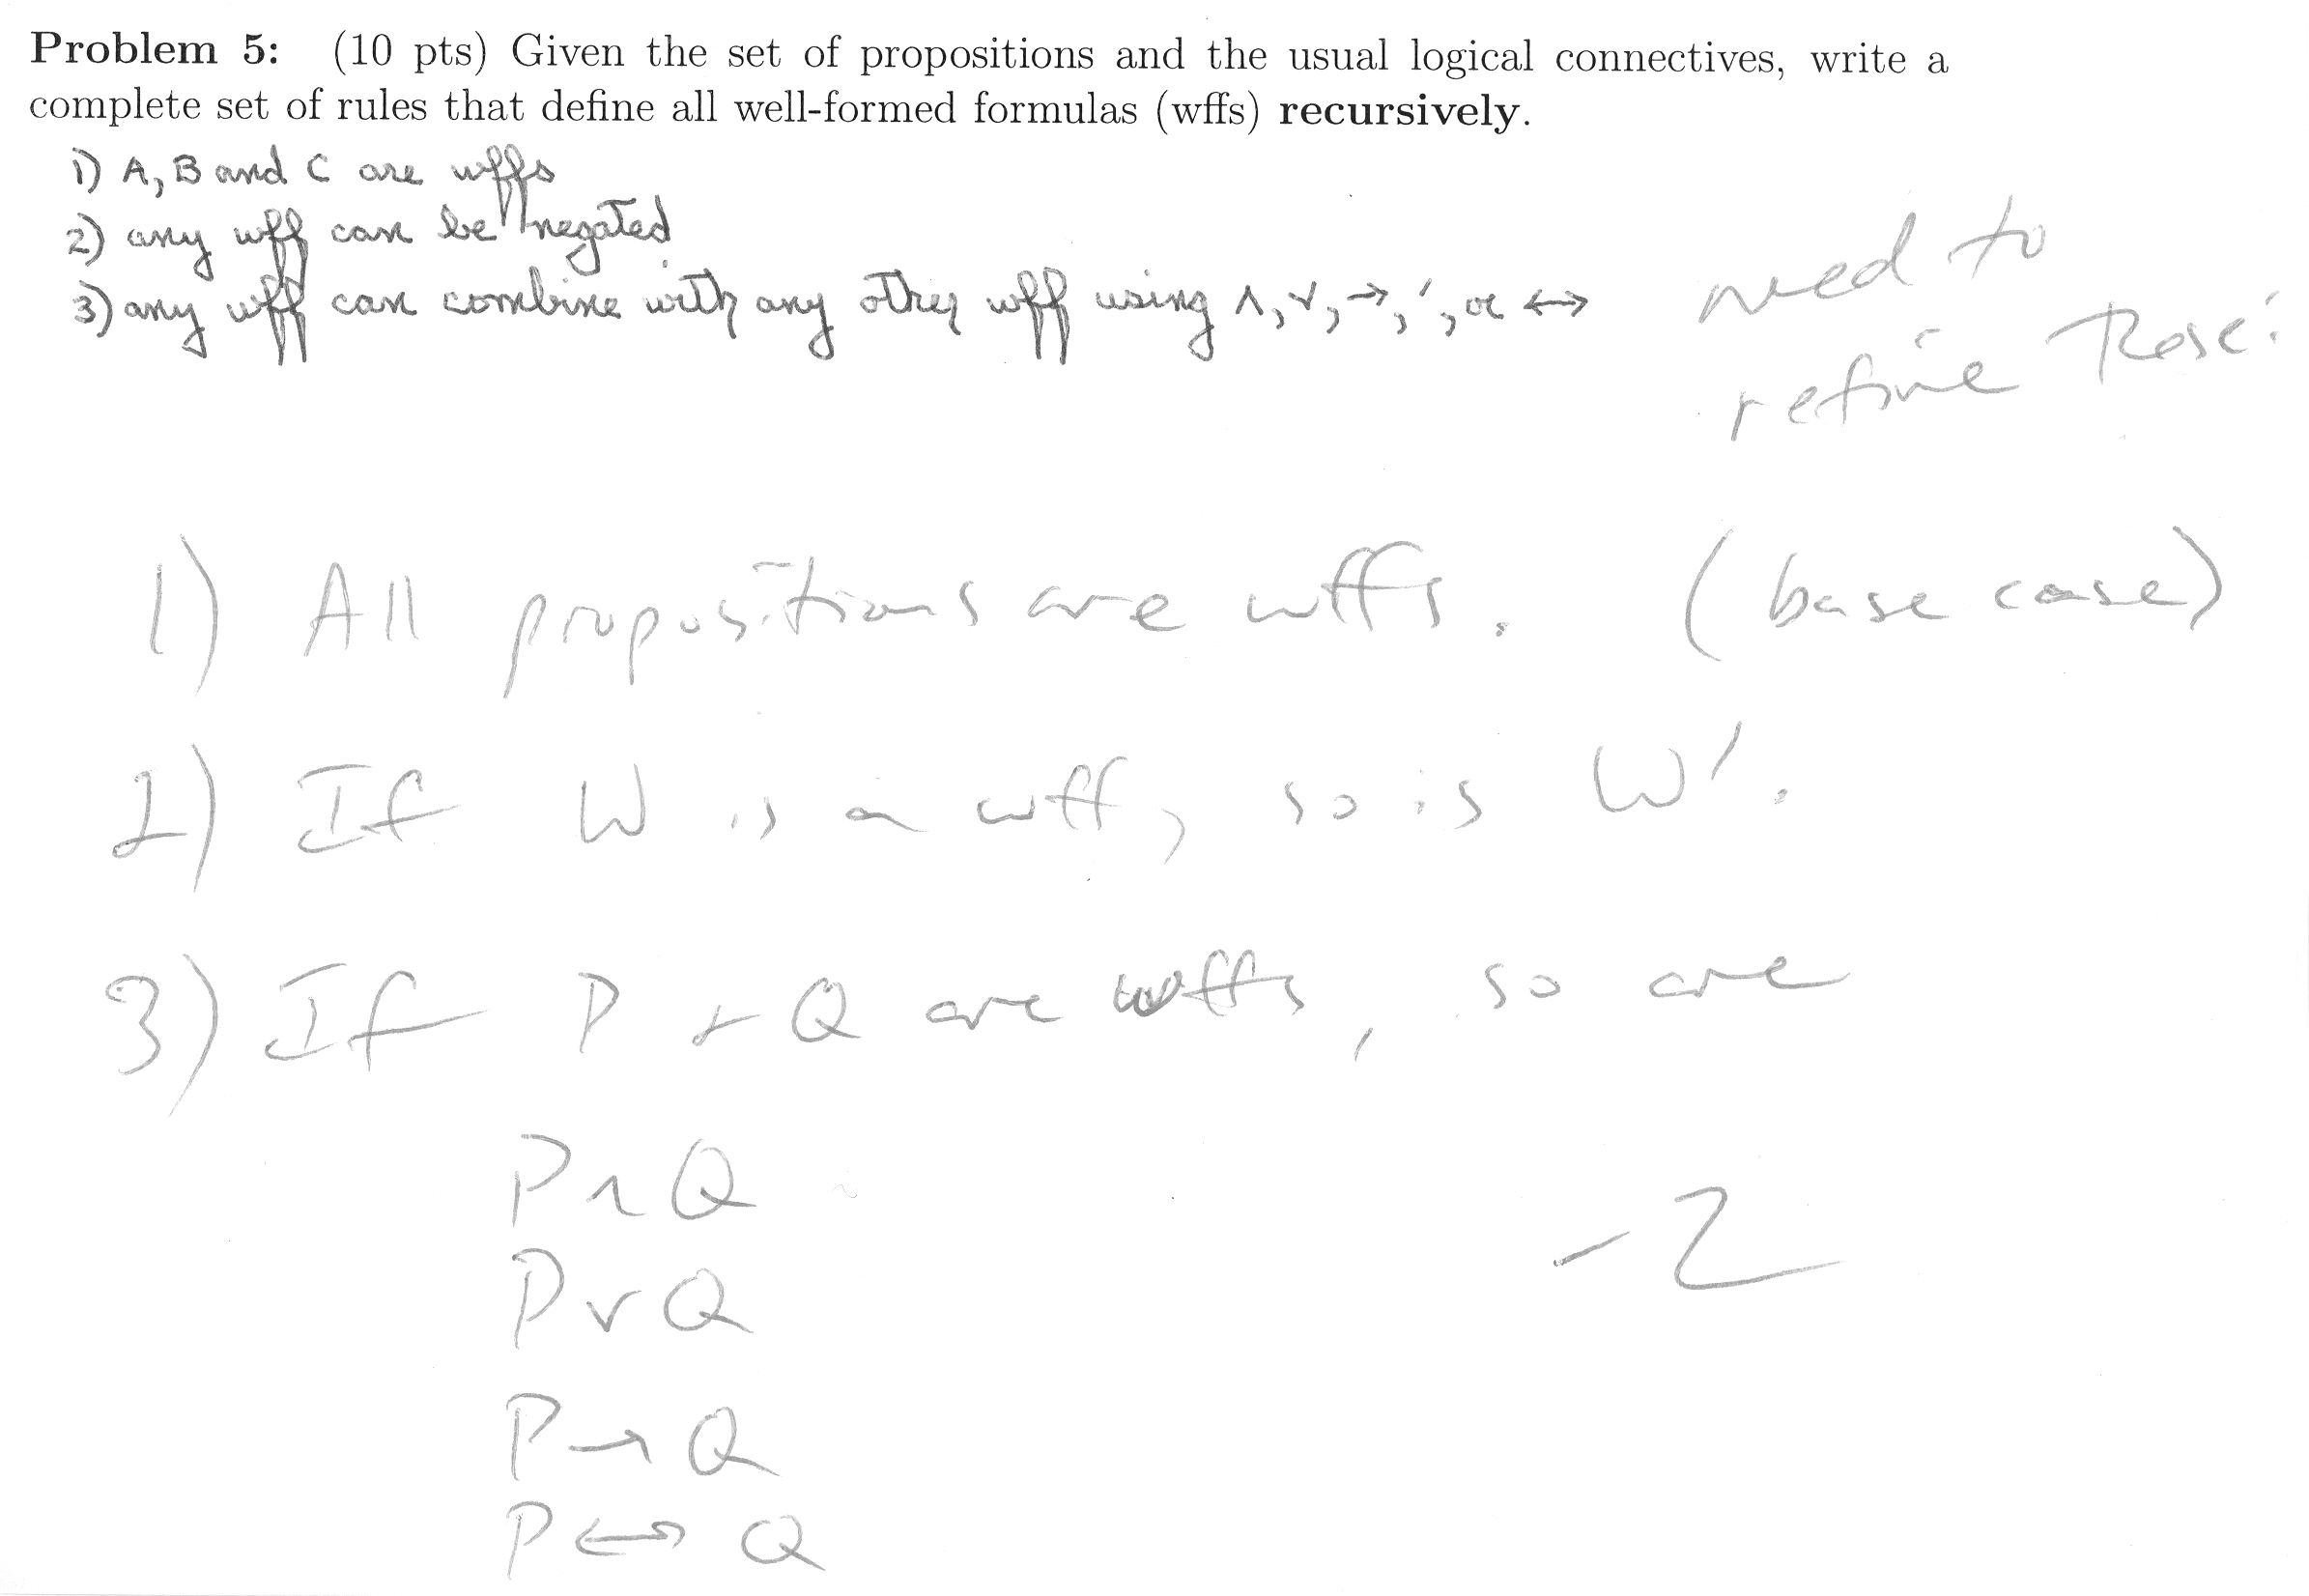 Problem 5: (10 pts) Given the set of propositions and the usual logical connectives, write a
complete set of rules that define all well-formed formulas (wffs) recursively.
1) A, B and C are wffs
2) any wff can be negated
3) any wff can combine with any other wff using ∧, ∨, →, ′, or ↔
need to
refine these!
1) All propositions are wffs. (base case)
2) If W is a wff, so is W′.
3) If P + Q are wffs, so are
P ∧ Q
P ∨ Q
-2
P → Q
P ↔ Q